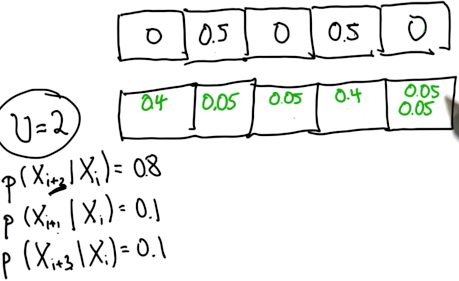 0 0.5 0 0.5 0
0.4 0.05 0.05 0.4 0.05
0.05
U=2
p(X_{i+2}|X_i)=0.8
p(X_{i+1}|X_i)=0.1
p(X_{i+3}|X_i)=0.1